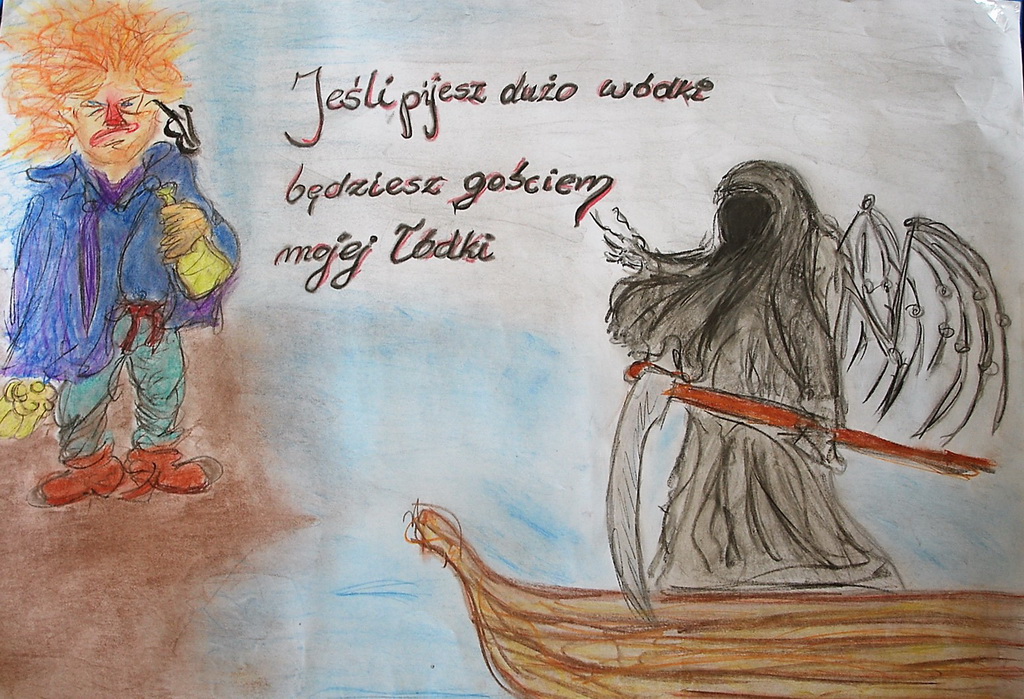 Jeśli pijesz dużo wódki
będziesz gościem
mojej łódki